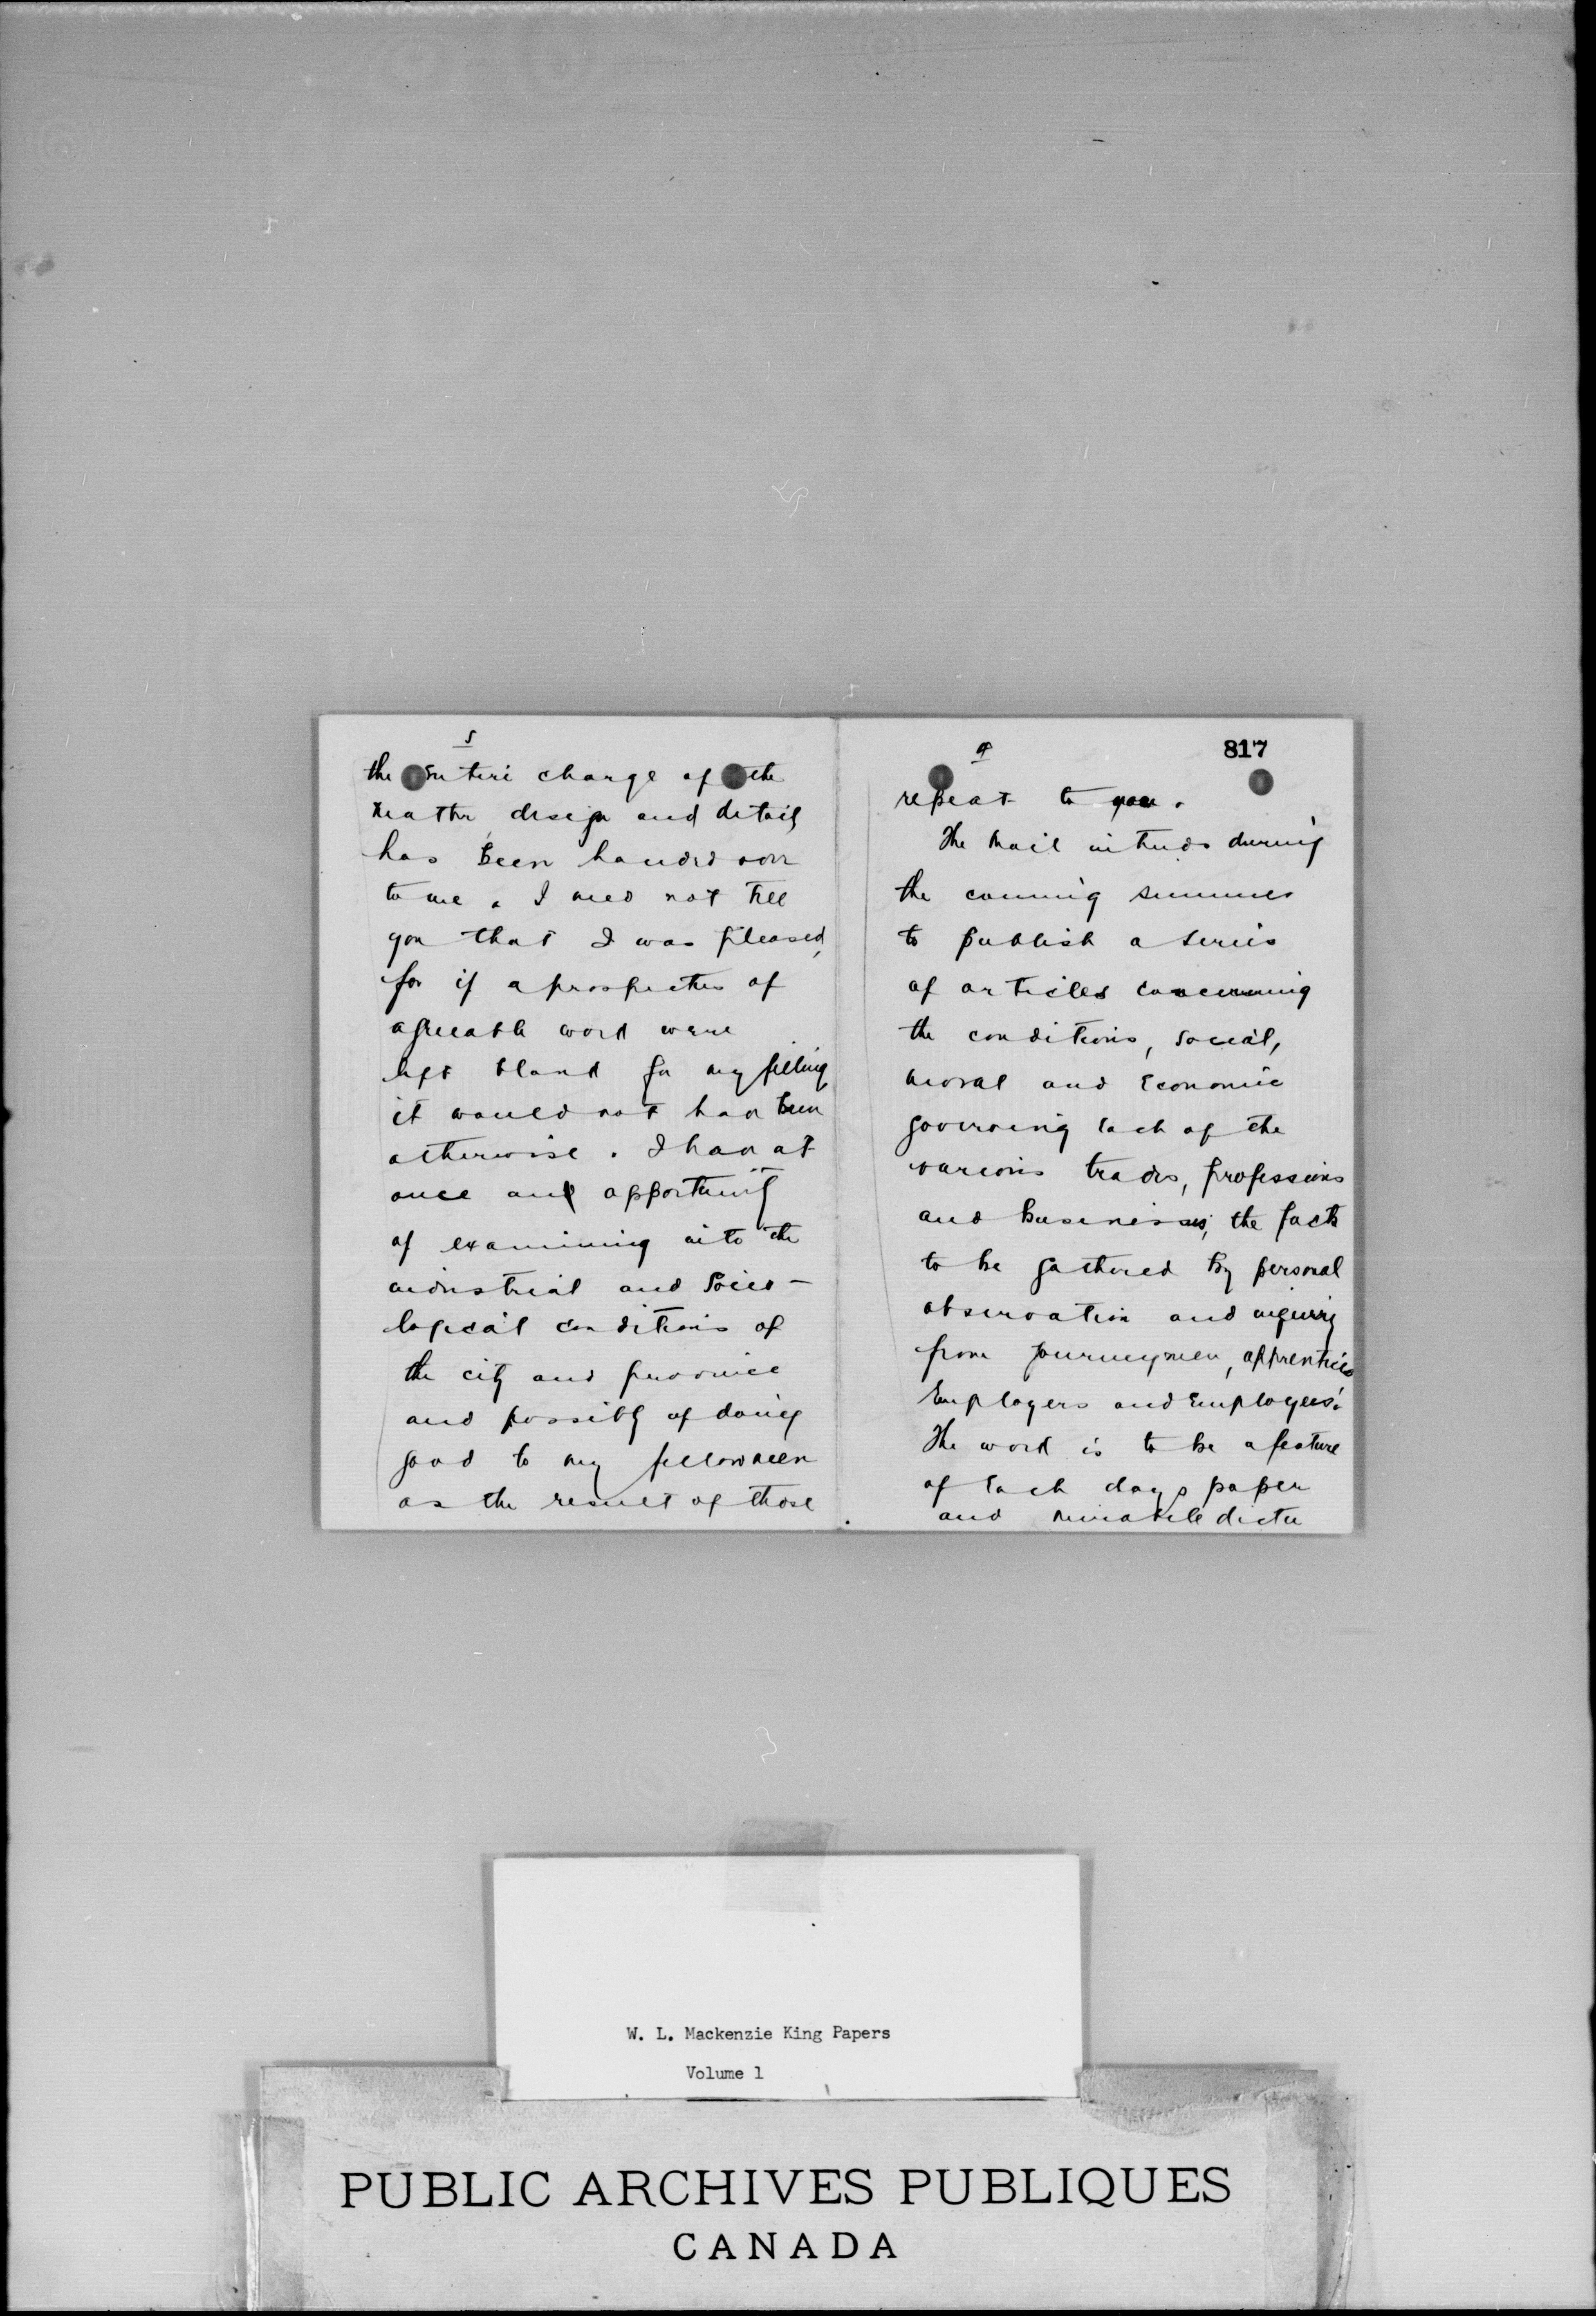 5
the entire charge of the
matter design and detail
has been handed over
to me. I need not tell
you that I was pleased,
for if a prospectus of
agreeable work were
left blank for my filling
it would not have been
otherwise. I have at
once an opportunity
of examining into the
industrial and Socio-
logical conditions of
the city and province
and possibly of doing
good to my fellowmen
as the result of those
4
817
repeat to you.
The Mail intends during
the coming summer
to publish a series
of articles concerning
the conditions, social,
moral and economic
governing each of the
various trades, professions
and businesses, the facts
to be gathered by personal
observation and inquiry
from journeymen, apprentices
Employers and Employees.
The work is to be a feature
of each days paper
and mirabile dictu
W. L. Mackenzie King Papers
Volume 1
PUBLIC ARCHIVES PUBLIQUES
CANADA